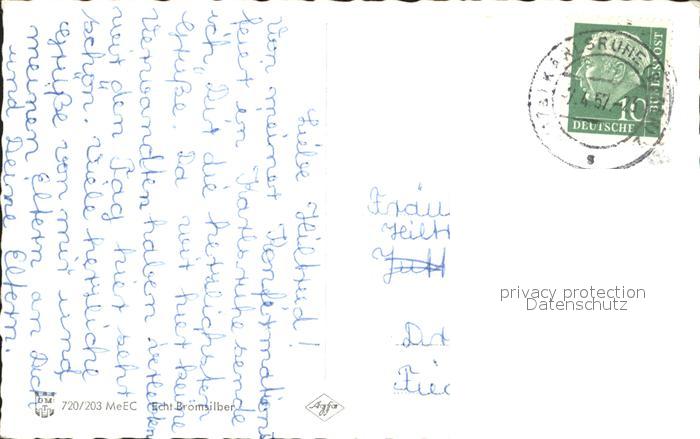 Liebe Heiltrud!
Von meiner Konfirmations
feier in Karlsruhe sende
ich Dir die herzlichsten
Grüße. Da wir hier keine
Verwandten haben verleben
wir den Tag hier sehr
schön. Viele herzliche
Grüße von mir und
meinen Eltern an Dich
und Deine Eltern.
KARLSRUHE
4.57
10
DEUTSCHE
BUNDESPOST
Fräu
Heilt
privacy protection
Datenschutz
720/203 MeEC Echt Bromsilber
Agfa